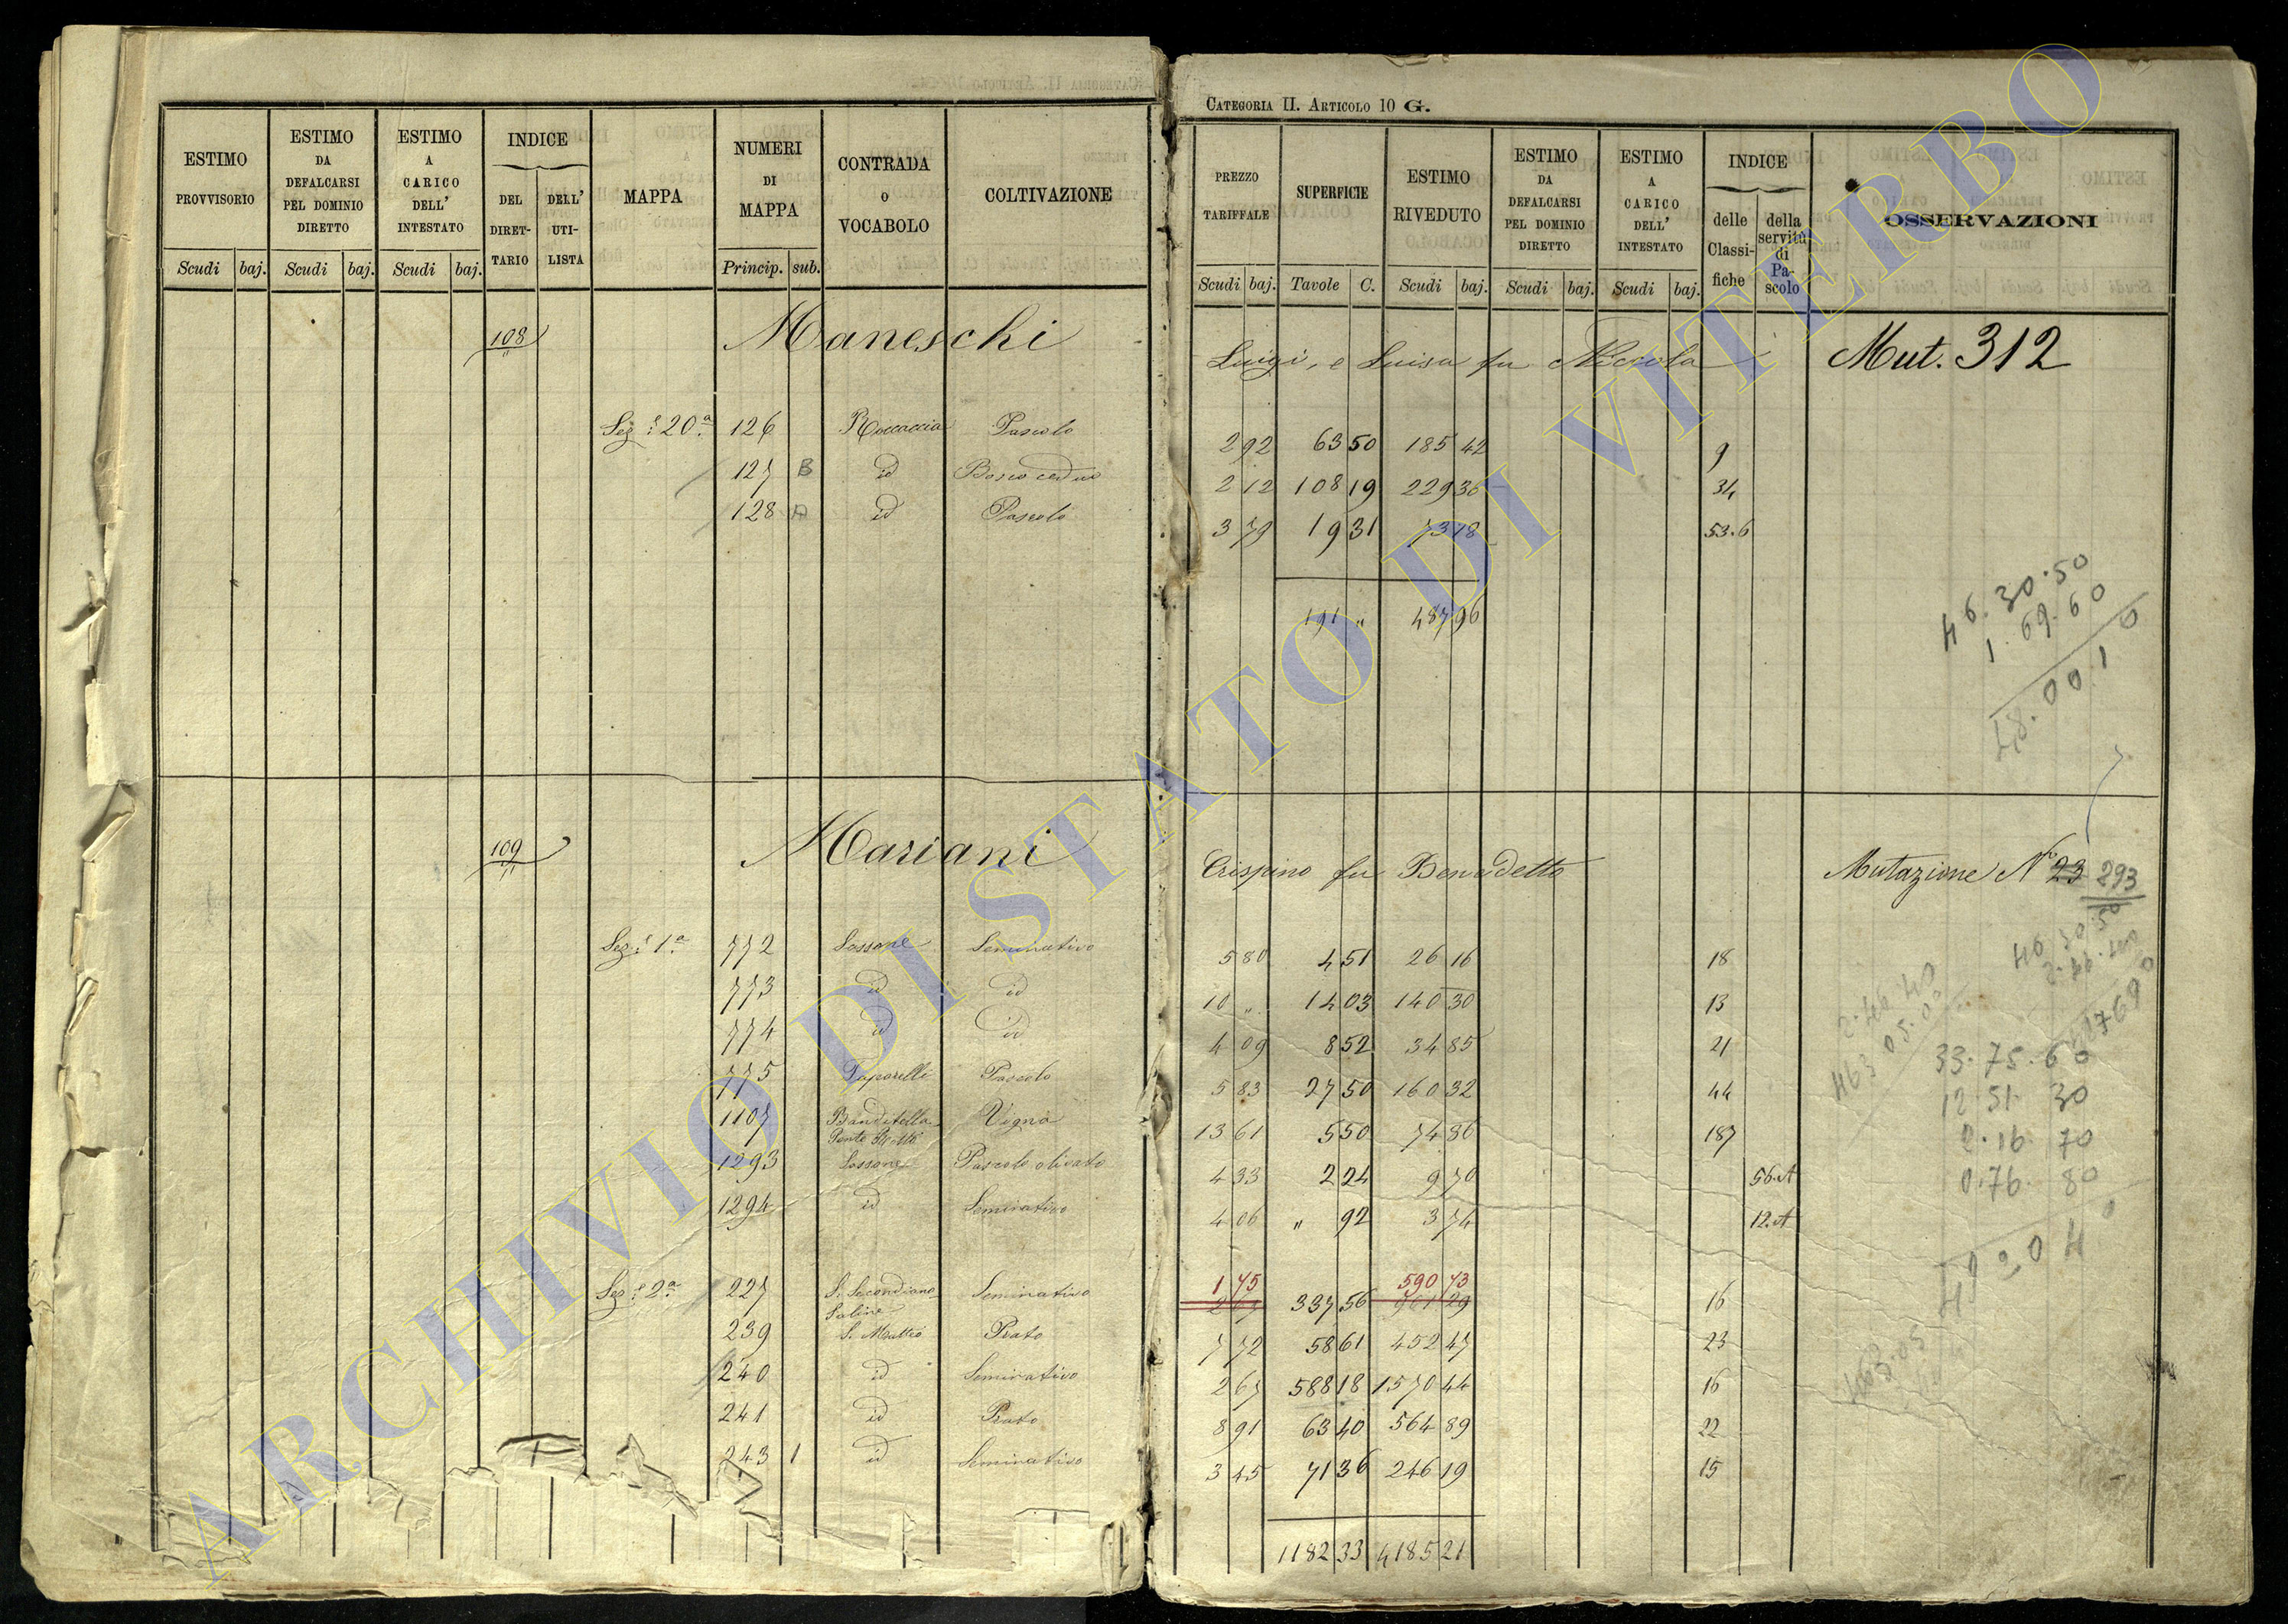 CATEGORIA II. ARTICOLO 10 G.
ESTIMO PROVVISORIO
ESTIMO DA DEFALCARSI PEL DOMINIO DIRETTO
ESTIMO A CARICO DELL' INTESTATO
INDICE
DEL DIRET-TARIO
DELL' UTI-LISTA
MAPPA
NUMERI DI MAPPA
CONTRADA O VOCABOLO
COLTIVAZIONE
Scudi baj. Scudi baj. Scudi baj. Princip. sub.
PREZZO TARIFFALE
SUPERFICIE
ESTIMO RIVEDUTO
ESTIMO DA DEFALCARSI PEL DOMINIO DIRETTO
ESTIMO A CARICO DELL' INTESTATO
INDICE
delle Classi-fiche
della servitù di Pa-scolo
OSSERVAZIONI
Scudi baj. Tavole C. Scudi baj. Scudi baj. Scudi baj.
108 Maneschi Luigi, e Luisa fu Niccola Mut. 312
Sez.e 20a 126 Roccaccia Pascolo 2 92 63 50 185 42 9
127 B id Bosco ceduo 2 12 108 19 229 36 34
128 A id Pascolo 3 79 19 31 73 18 53.6
191 " 487 96
46.30.50
1.69.60
48.001 0
109 Mariani Crispino fu Benedetto Mutazione No 23 293
Sez.e 1a 772 Sassone Seminativo 5 80 4 51 26 16 18
773 id id 10 " 14 03 140 30 13
774 id id 4 09 8 52 34 85 21
775 Taparelli Pascolo 5 83 27 50 160 32 44
1107 Banditella Ponte Rotto Vigna 13 61 5 50 74 86 187
1293 Sassone Pascolo olivato 4 33 2 24 9 70 56.A
1294 id Seminativo 4 06 " 92 3 74 12.A
1 75 590 73
Sez.e 2a 227 S. Secondiano Saline Seminativo 337 56 961 29 16
239 S. Matteo Prato 7 72 58 61 452 47 23
240 id Seminativo 2 67 588 18 1570 44 16
241 id Prato 8 91 63 40 564 89 22
243 1 id Seminativo 3 45 71 36 246 19 15
1182 33 4185 21
33.75.60
12.51.30
2.16.70
0.76.80
ARCHIVIO DI STATO DI VITERBO